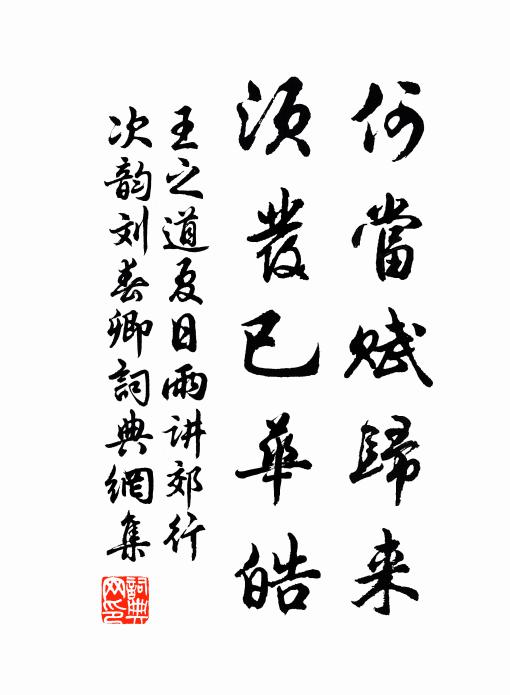 何當賦歸来
须發已華皓
王之道夏日雨讲郊行
次韵刘春卿詞典網集